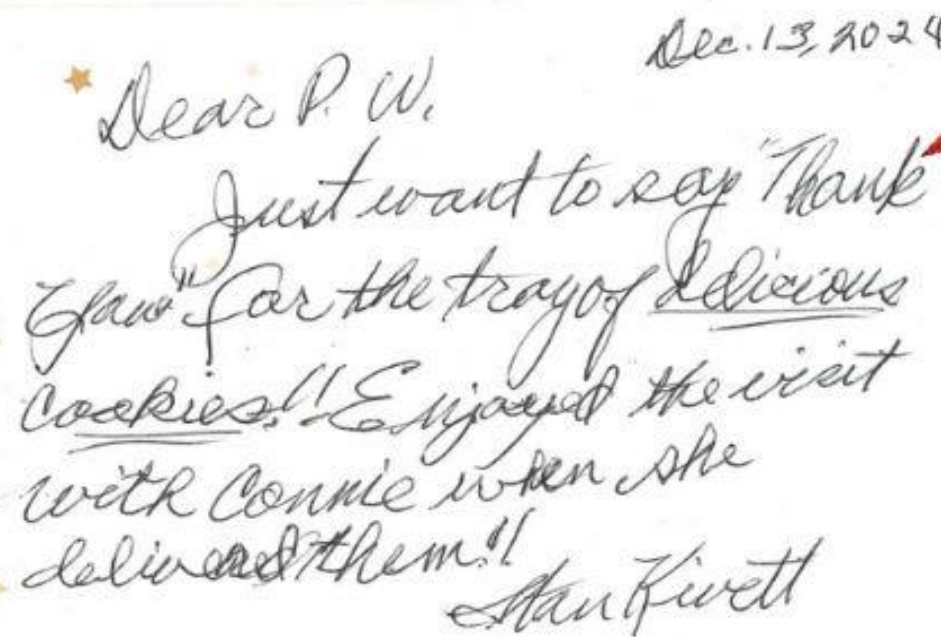 Dec. 13, 2024
Dear P. W.
Just want to say "Thank
You" for the tray of delicious
cookies!! Enjoyed the visit
with Connie when she
delivered them!!
Stan Kivett